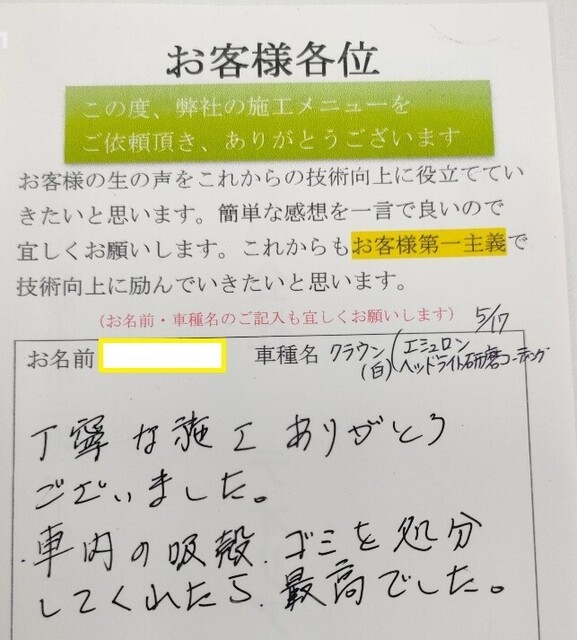 お客様各位
この度、弊社の施工メニューを
ご依頼頂き、ありがとうございます
お客様の生の声をこれからの技術向上に役立ててい
きたいと思います。簡単な感想を一言で良いので
宜しくお願いします。これからもお客様第一主義で
技術向上に励んでいきたいと思います。
(お名前・車種名のご記入も宜しくお願いします)
5/17
お名前 車種名 クラウン(エシュロン
(白) ヘッドライト研磨コーティング
丁寧な施工ありがとう
ございました。
車内の吸殻、ゴミを処分
してくれたら、最高でした。